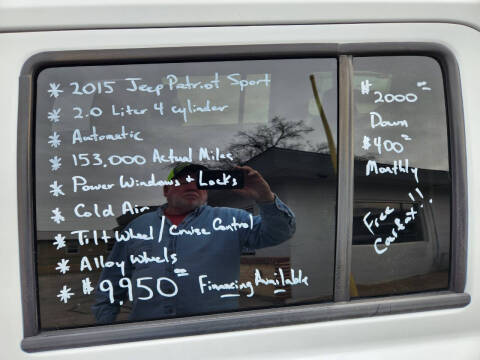 * 2015 Jeep Patriot Sport
* 2.0 Liter 4 cylinder
* Automatic
* 153,000 Actual Miles
* Power Windows + Locks
* Cold Air
* Tilt Wheel / Cruise Control
* Alloy Wheels
* $9,950⁰⁰ Financing Available
$2000⁰⁰
Down
$400⁰⁰
Monthly
Free
Carfax!!